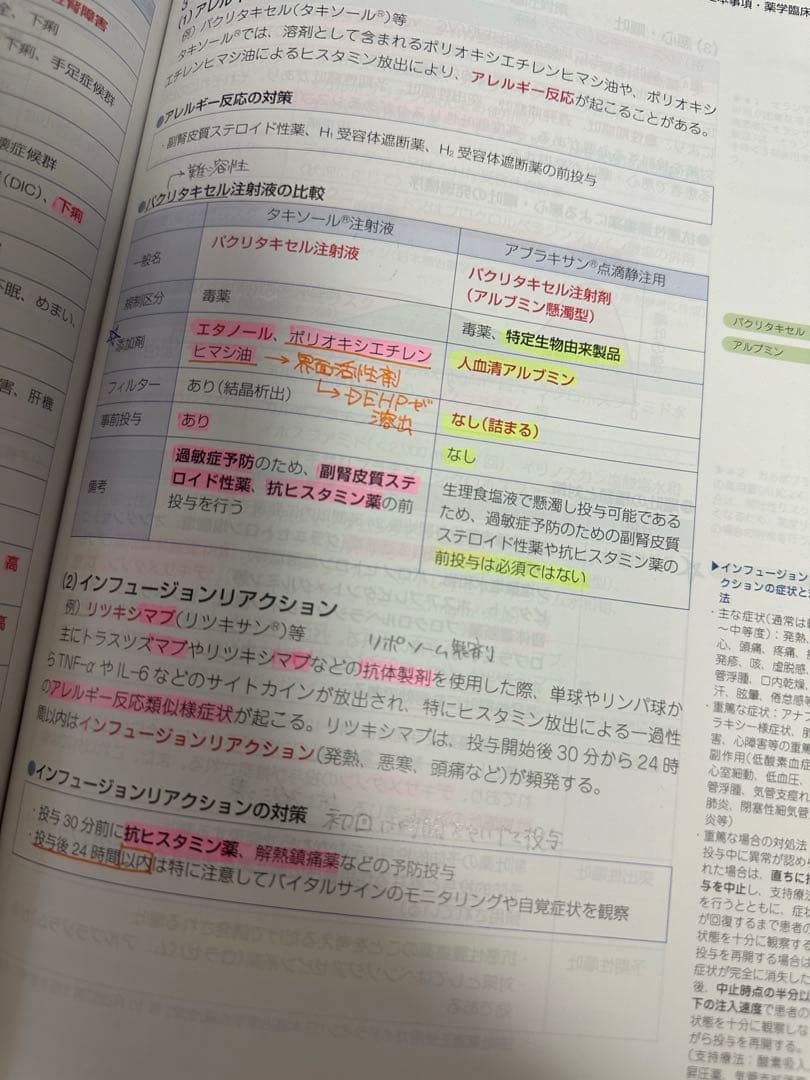 (1) アレル
例) パクリタキセル(タキソール®)等
タキソール®では、溶剤として含まれるポリオキシエチレンヒマシ油や、ポリオキシ
エチレンヒマシ油によるヒスタミン放出により、アレルギー反応が起こることがある。
●アレルギー反応の対策
・副腎皮質ステロイド性薬、H₁受容体遮断薬、H₂受容体遮断薬の前投与
→難溶性
●パクリタキセル注射液の比較
タキソール®注射液
アブラキサン®点滴静注用
一般名
パクリタキセル注射液
パクリタキセル注射剤
(アルブミン懸濁型)
規制区分
毒薬
毒薬、特定生物由来製品
☆添加剤
エタノール、ポリオキシエチレン
ヒマシ油 → 界面活性剤
↳ DEHPが
溶出
人血清アルブミン
フィルター
あり(結晶析出)
なし(詰まる)
事前投与
あり
なし
備考
過敏症予防のため、副腎皮質ステ
ロイド性薬、抗ヒスタミン薬の前
投与を行う
生理食塩液で懸濁し投与可能である
ため、過敏症予防のための副腎皮質
ステロイド性薬や抗ヒスタミン薬の
前投与は必須ではない
(2) インフュージョンリアクション
例) リツキシマブ(リツキサン®)等
リポソーム製剤
主にトラスツズマブやリツキシマブなどの抗体製剤を使用した際、単球やリンパ球か
らTNF-αやIL-6などのサイトカインが放出され、特にヒスタミン放出による一過性
のアレルギー反応類似様症状が起こる。リツキシマブは、投与開始後30分から24時
間以内はインフュージョンリアクション(発熱、悪寒、頭痛など)が頻発する。
●インフュージョンリアクションの対策
・投与30分前に抗ヒスタミン薬、解熱鎮痛薬などの予防投与
・投与後24時間以内は特に注意してバイタルサインのモニタリングや自覚症状を観察
腎障害
、下痢
、下痢、手足症候群
壊症候群
(DIC)、下痢
不眠、めまい、
害、肝機
高
高
本事項・薬学臨床
パクリタキセル
アルブミン
▶インフュージョン
クションの症状と
法
・主な症状(通常は
〜中等度):発熱、
心、頭痛、疼痛、
発疹、咳、虚脱感、
管浮腫、口内乾燥、
汗、眩暈、倦怠感
・重篤な症状:アナ
ラキシー様症状、肺
害、心障害等の重篤
副作用(低酸素血症
心室細動、低血圧、
管浮腫、気管支痙れ
肺炎、閉塞性細気管
炎等)
・重篤な場合の対処法
投与中に異常が認め
れた場合は、直ちに投
与を中止し、支持療法
を行うとともに、症状
が回復するまで患者の
状態を十分に観察する
投与を再開する場合は
症状が完全に消失した
後、中止時点の半分以
下の注入速度で患者の
状態を十分に観察しな
がら投与を再開する。
(支持療法:酸素吸入
昇圧薬、気管支